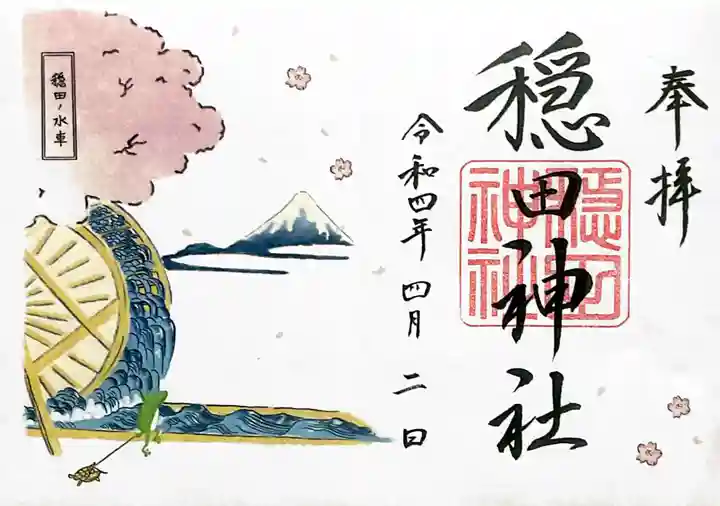 奉拝
穏田神社
穏田神社
令和四年 四月 二日
穏田ノ水車